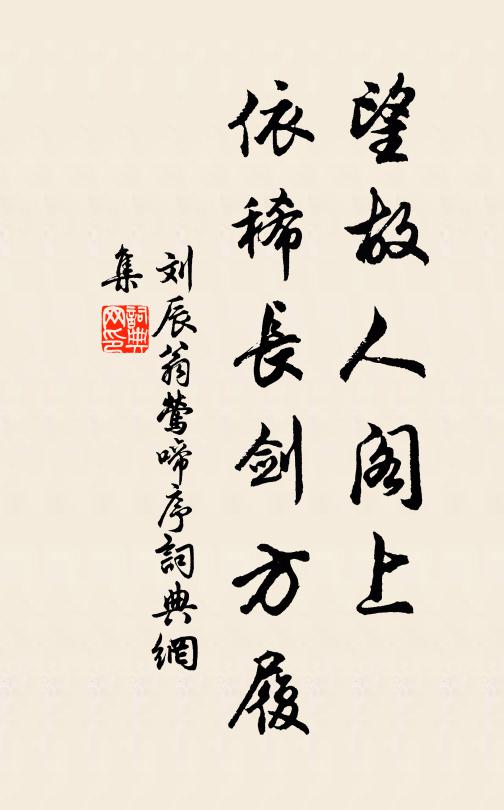 望故人阁上
依稀長剑方履
刘辰翁莺啼序詞典網
集
詞典
网印